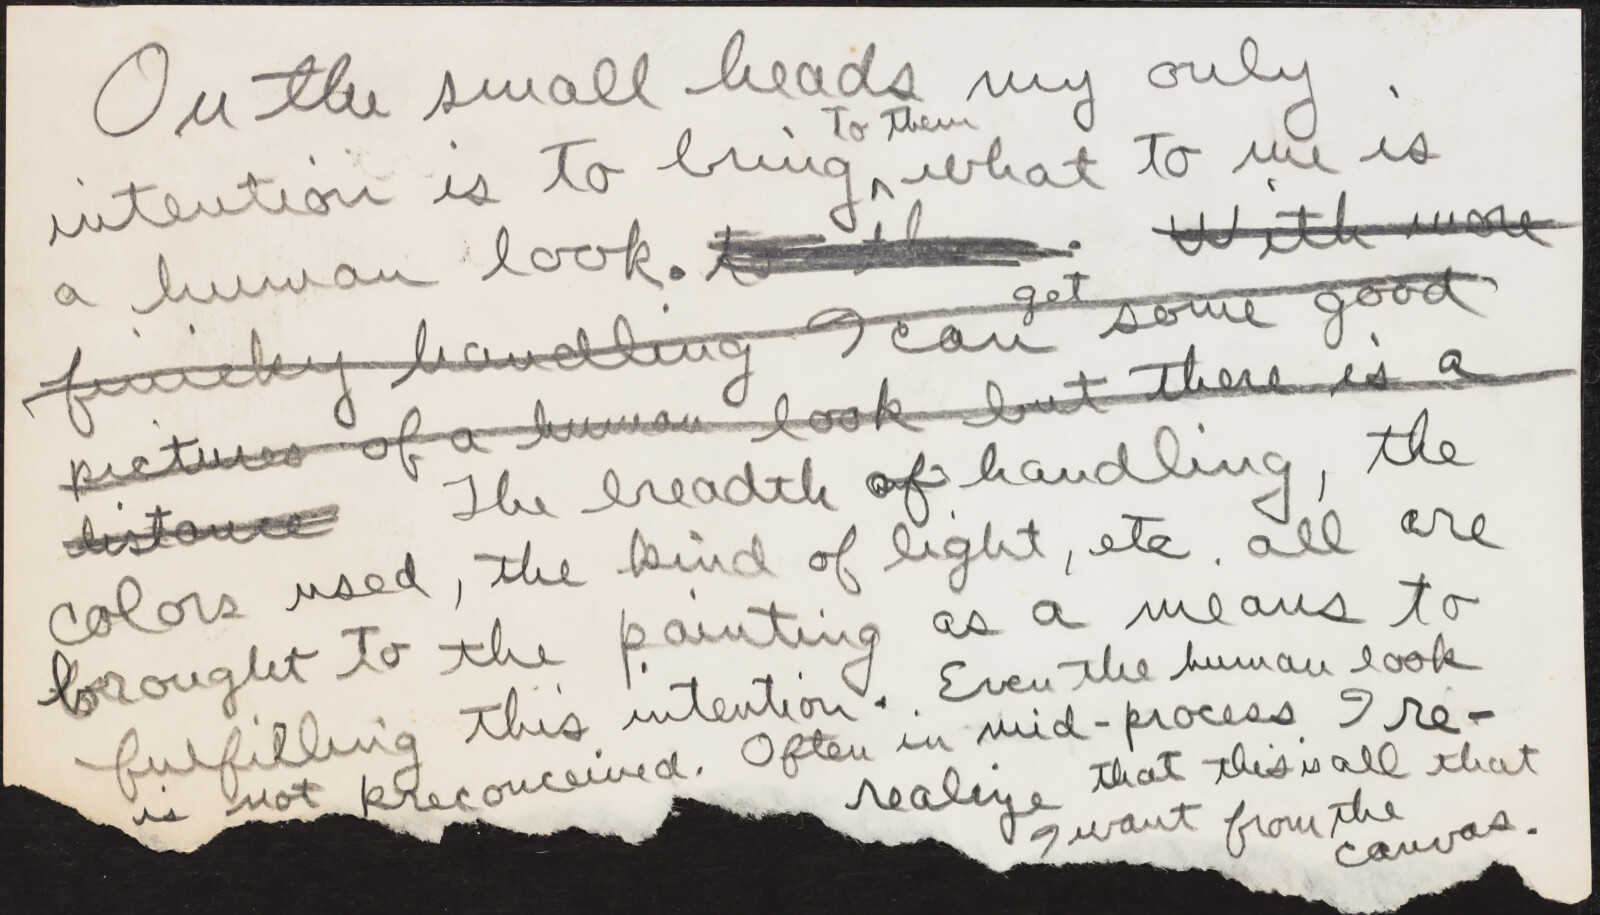 On the small heads my only
intention is to bring to them what to me is
a human look. to th. With more
finicky handling I can get some good
pictures of a human look but there is a
distance The breadth of handling, the
colors used, the kind of light, etc. all are
brought to the painting as a means to
fulfilling this intention. Even the human look
is not preconceived. Often in mid-process I re-
realize that this is all that
I want from the
canvas.